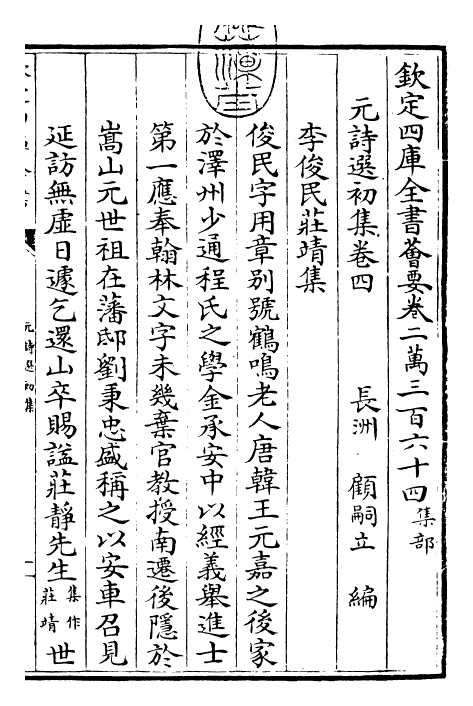 欽定四庫全書薈要卷二萬三百六十四集部
元詩選初集卷四 長洲 顧嗣立 編
李俊民莊靖集
俊民字用章别號鶴鳴老人唐韓王元嘉之後家
於澤州少通程氏之學金承安中以經義舉進士
第一應奉翰林文字未幾棄官教授南遷後隱於
嵩山元世祖在藩邸劉秉忠盛稱之以安車召見
延訪無虛日遽乞還山卒賜諡莊靜先生集作莊靖世
元詩選初集